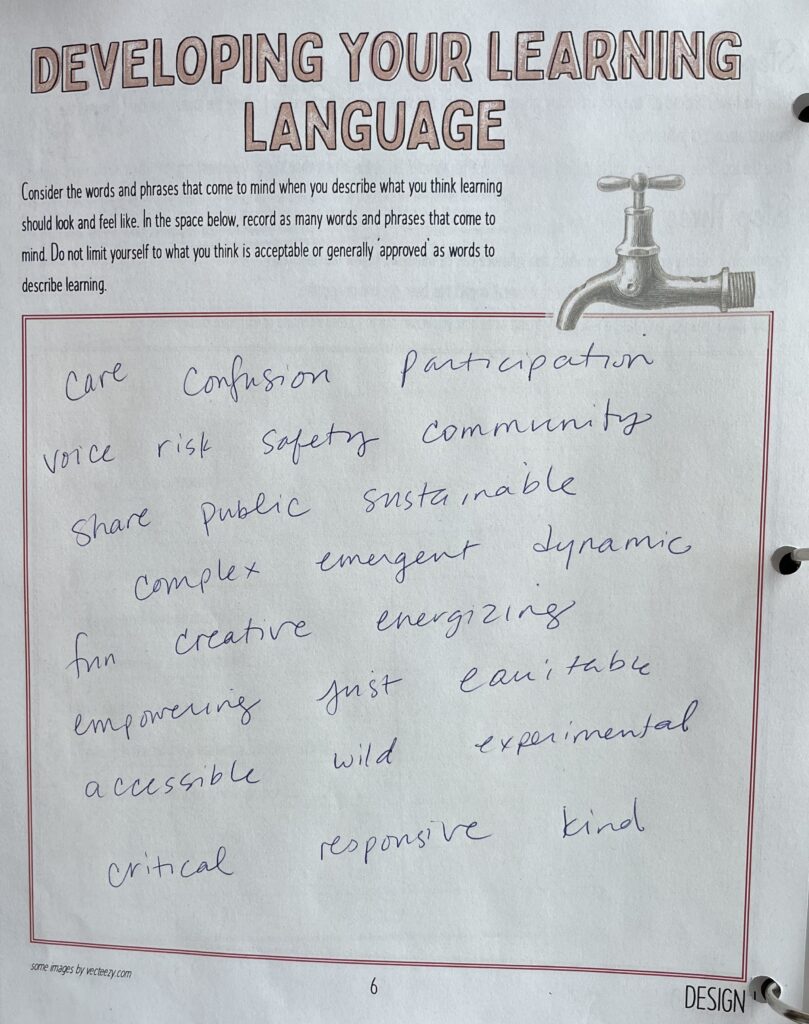 DEVELOPING YOUR LEARNING
LANGUAGE
Consider the words and phrases that come to mind when you describe what you think learning
should look and feel like. In the space below, record as many words and phrases that come to
mind. Do not limit yourself to what you think is acceptable or generally 'approved' as words to
describe learning.
care confusion participation
voice risk safety community
share public sustainable
complex emergent dynamic
fun creative energizing
empowering just equitable
accessible wild experimental
critical responsive kind
some images by vecteezy.com
6
DESIGN